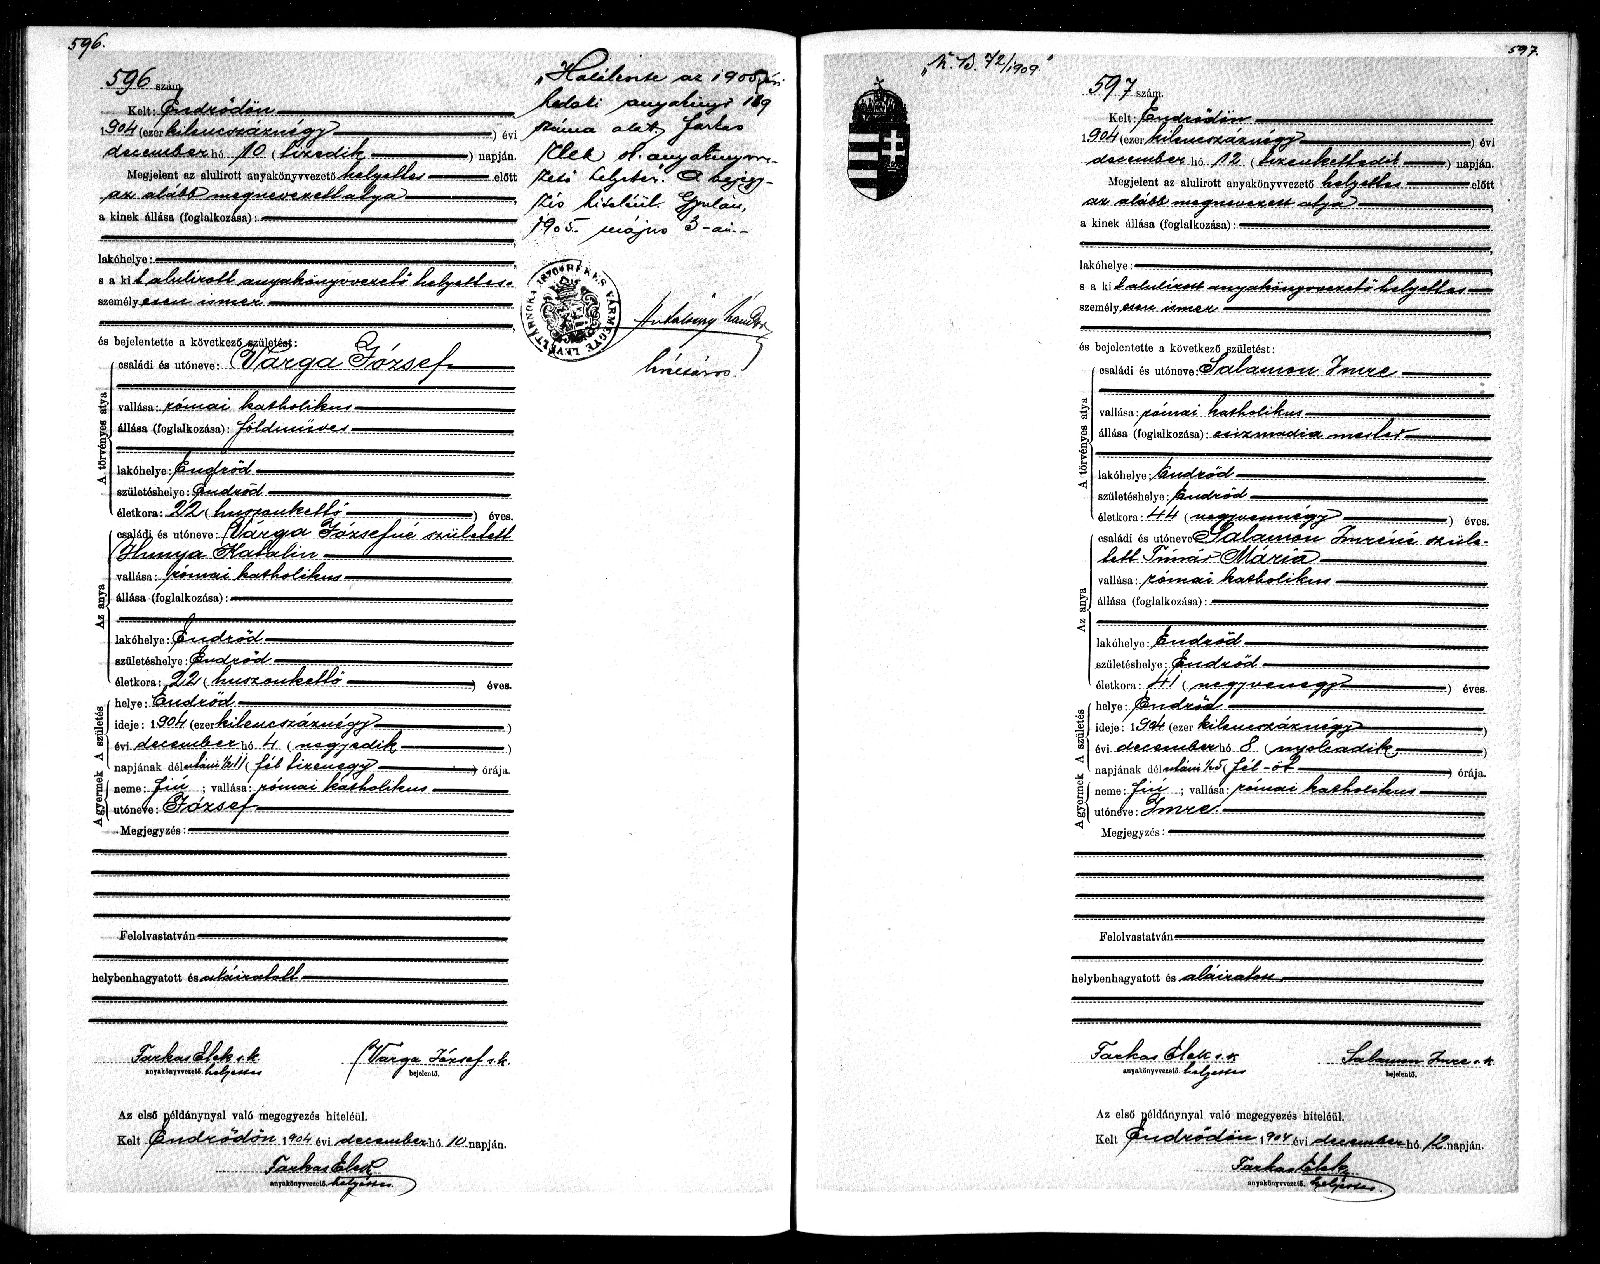 596.
596 szám.
Kelt: Endrődön
1904 (ezer kilencszáznégy) évi
december hó 10 (tizedik) napján.
Megjelent az alulirott anyakönyvvezető helyettes előtt
az alább megnevezett atya
a kinek állása (foglalkozása):
lakóhelye:
s a kit alulirott anyakönyvvezető helyettes
személyesen ismer
és bejelentette a következő születést:
A törvényes atya
családi és utóneve: Varga József
vallása: római katholikus
állása (foglalkozása): földmüves
lakóhelye: Endrőd
születéshelye: Endrőd
életkora: 22 (huszonkettő) éves.
Az anya
családi és utóneve: Varga Józsefné született
Hunya Katalin
vallása: római katholikus
állása (foglalkozása):
lakóhelye: Endrőd
születéshelye: Endrőd
életkora: 22 (huszonkettő) éves.
A születés
helye: Endrőd
ideje: 1904 (ezer kilencszáznégy)
évi december hó 4 (negyedik)
napjának délutáni ½11 (fél tizenegy) órája.
A gyermek
neme: fiú; vallása: római katholikus
utóneve: József
Megjegyzés:
Felolvastatván
helybenhagyatott és aláiratott
Farkas Elek s.k. Varga József s.k.
anyakönyvvezető helyettes bejelentő.
Az első példánynyal való megegyezés hiteléül.
Kelt Endrődön 1904 évi december hó 10 napján.
Farkas Elek
anyakönyvvezető. helyettes
„Halálesete az 1905 évi
halati anyakönyv 189
száma alatt. Farkas
Elek st. anyakönyvve-
zető helyettes. A bejegy-
zés hiteléül. Gyulán,
1905. május 3-án.
BÉKÉS VÁRMEGYE LEVÉLTÁRNOKA 1870
597.
„K. B. 72/1909"
597 szám.
Kelt: Endrődön
1904 (ezer kilencszáznégy) évi
december hó 12 (tizenkettedik) napján.
Megjelent az alulirott anyakönyvvezető helyettes előtt
az alább megnevezett atya
a kinek állása (foglalkozása):
lakóhelye:
s a kit alulirott anyakönyvvezető helyettes
személyesen ismer
és bejelentette a következő születést:
A törvényes atya
családi és utóneve: Salamon Imre
vallása: római katholikus
állása (foglalkozása): csizmadia mester
lakóhelye: Endrőd
születéshelye: Endrőd
életkora: 44 (negyvennégy) éves.
Az anya
családi és utóneve Salamon Imréné szüle-
tett Tímár Mária
vallása: római katholikus
állása (foglalkozása):
lakóhelye: Endrőd
születéshelye: Endrőd
életkora: 41 (negyvenegy) éves.
A születés
helye: Endrőd
ideje: 1904 (ezer kilencszáznégy)
évi december hó 8 (nyolcadik)
napjának délutáni ½5 (fél-öt) órája.
A gyermek
neme: fiú; vallása: római katholikus
utóneve: Imre
Megjegyzés:
Felolvastatván
helybenhagyatott és aláiratott
Farkas Elek s.k. Salamon Imre s.k.
anyakönyvvezető. helyettes bejelentő.
Az első példánynyal való megegyezés hiteléül.
Kelt Endrődön 1904 évi december hó 12 napján.
Farkas Elek
anyakönyvvezető. helyettes.